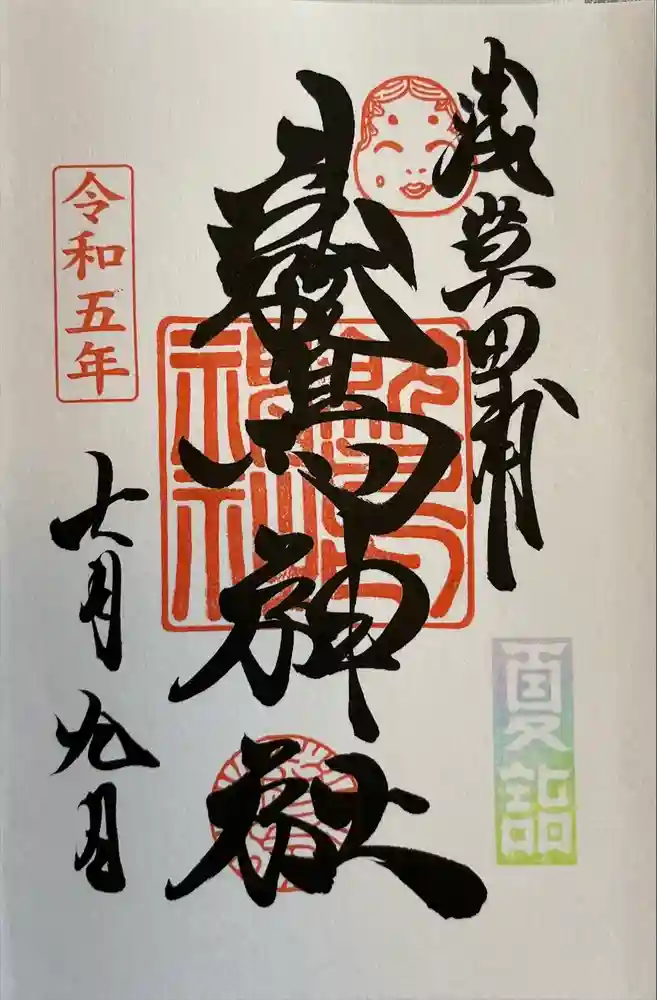 浅草田甫
夏詣
鷲神社
令和五年
七月九日